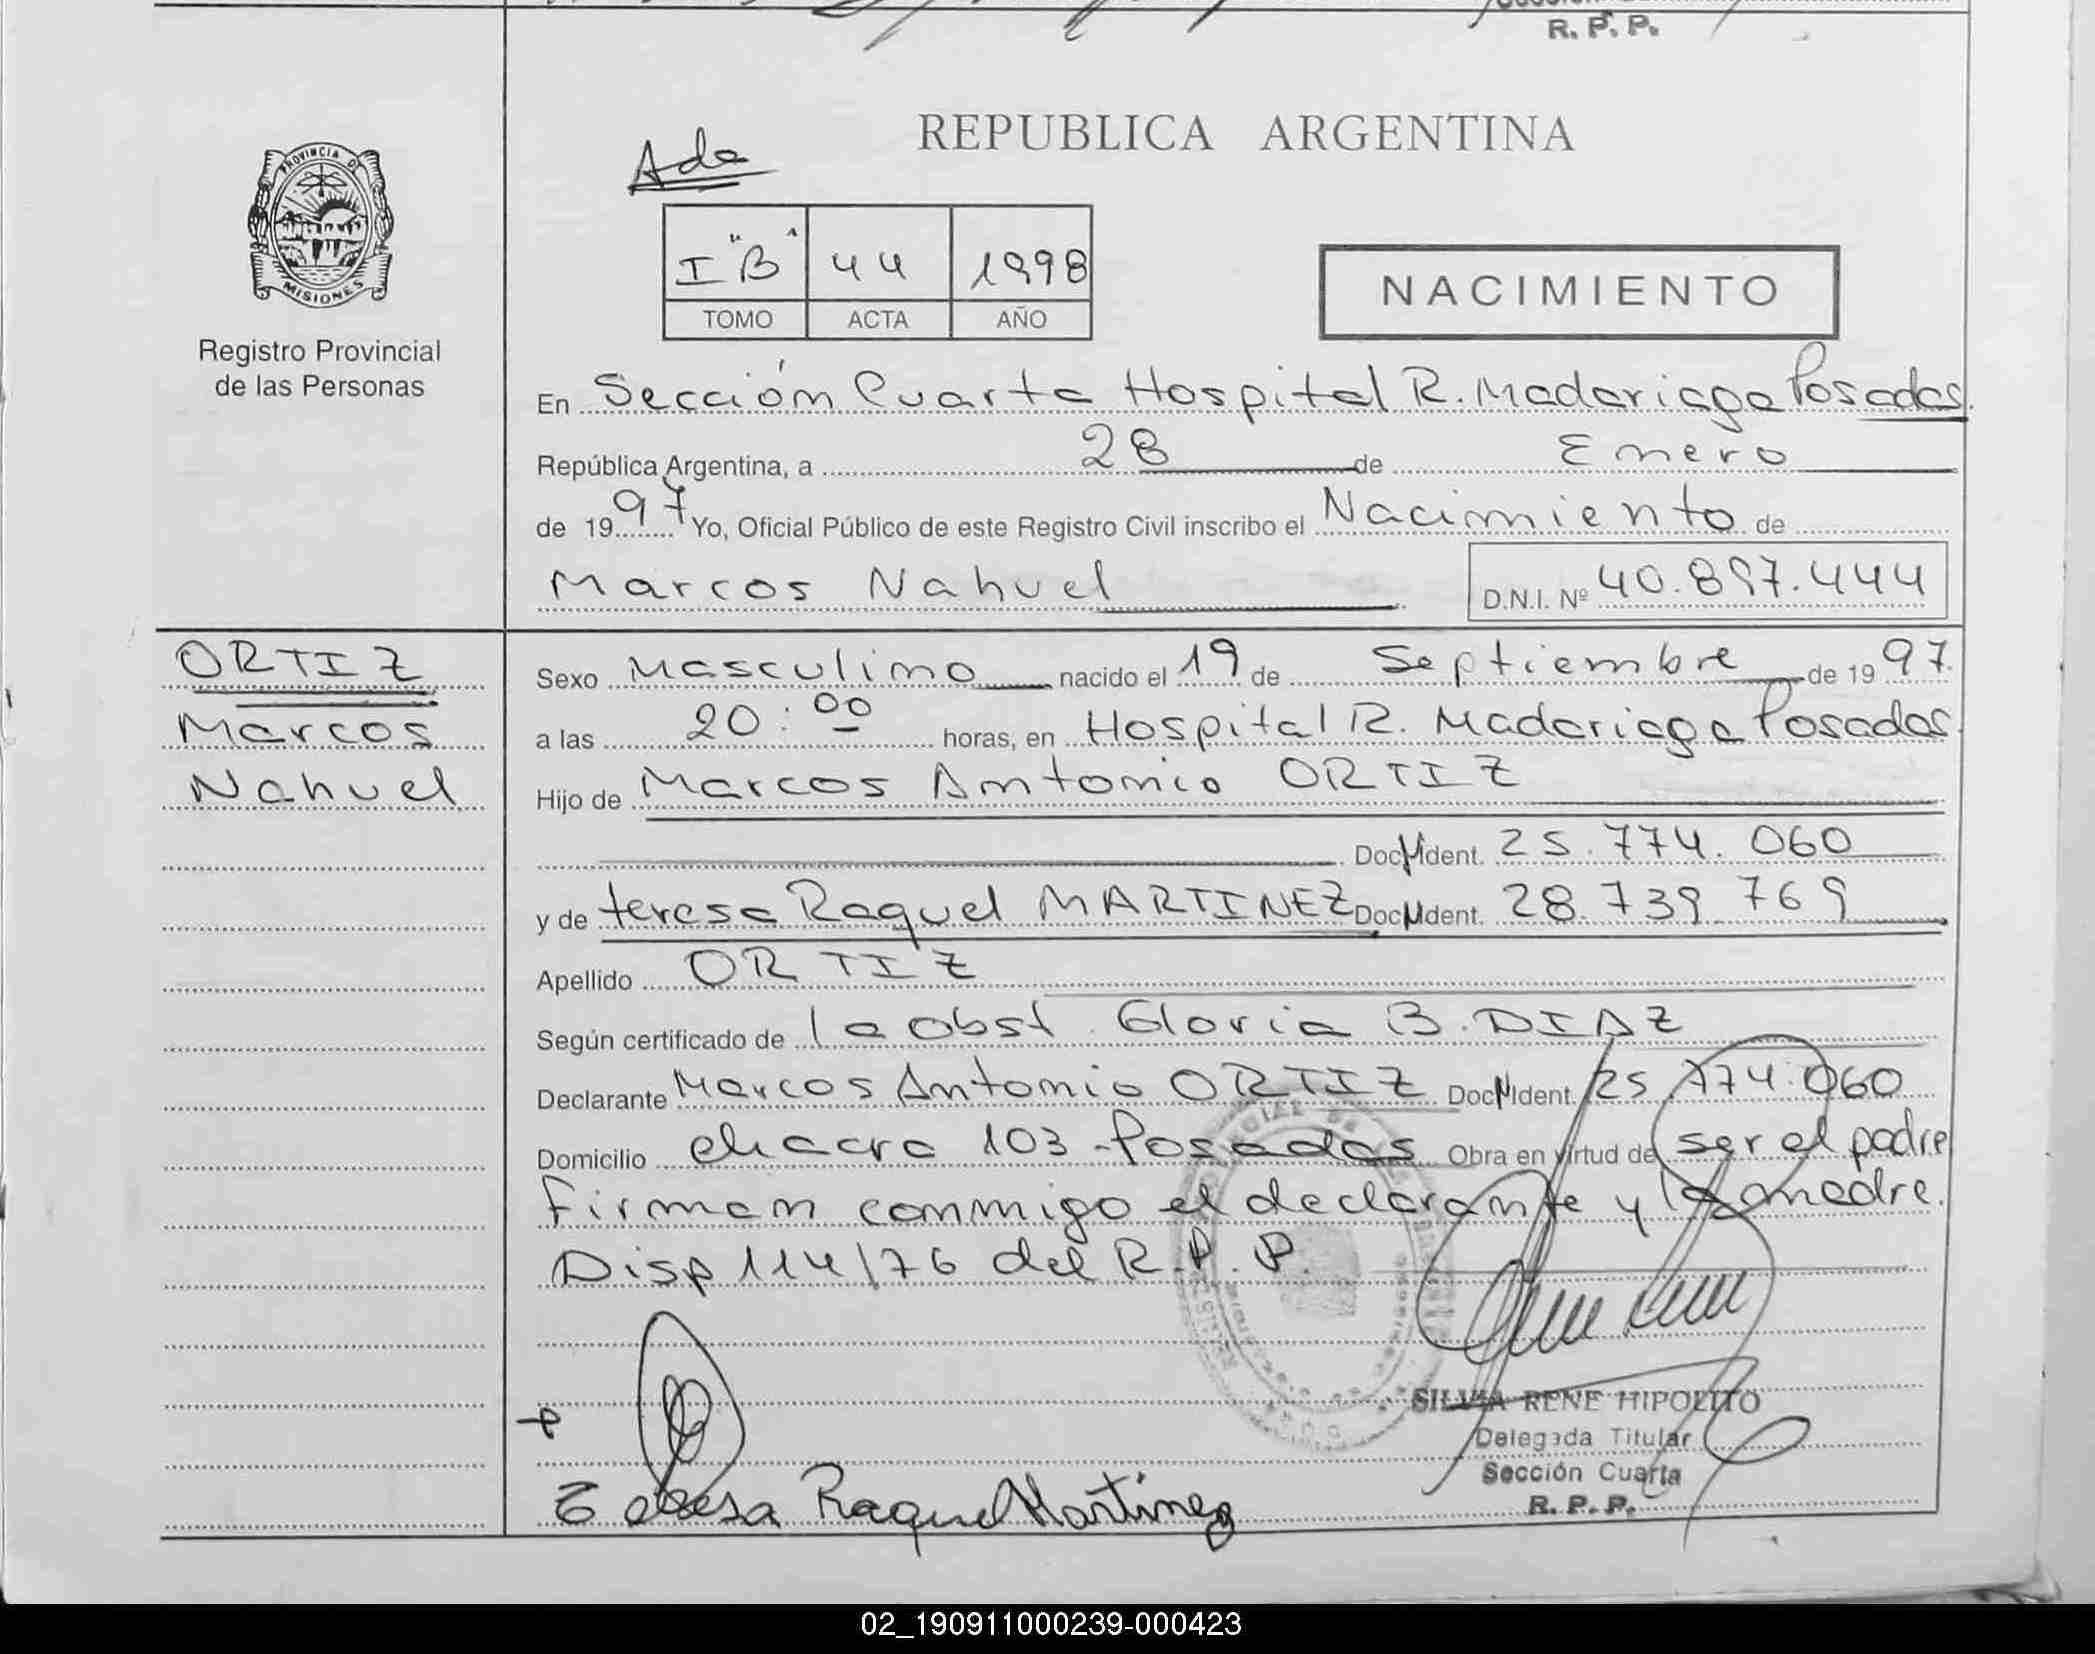 R. P. P.
REPUBLICA ARGENTINA
PROVINCIA DE
MISIONES
Registro Provincial
de las Personas
Ada
I "B" 44 1998
TOMO ACTA AÑO
NACIMIENTO
En Sección Cuarta Hospital R. Madariaga Posadas
República Argentina, a 28 de Enero
de 1997 Yo, Oficial Público de este Registro Civil inscribo el Nacimiento de
Marcos Nahuel D.N.I. Nº 40.897.444
ORTIZ
Marcos
Nahuel
Sexo Masculino nacido el 19 de Septiembre de 1997
a las 20:00 horas, en Hospital R. Madariaga Posadas
Hijo de Marcos Antonio ORTIZ
Doc. Ident. 25.774.060
y de teresa Raquel MARTINEZ Doc. Ident. 28.739.769
Apellido ORTIZ
Según certificado de la obst. Gloria B. DIAZ
Declarante Marcos Antonio ORTIZ Doc. Ident. 25.774.060
Domicilio chacra 103 - Posadas Obra en virtud de ser el padre
firman conmigo el declarante y la madre.
Disp 114/76 del R.P.P.
SILVIA RENE HIPOLITO
Delegada Titular
Sección Cuarta
R. P. P.
Teresa Raquel Martinez
02_190911000239-000423